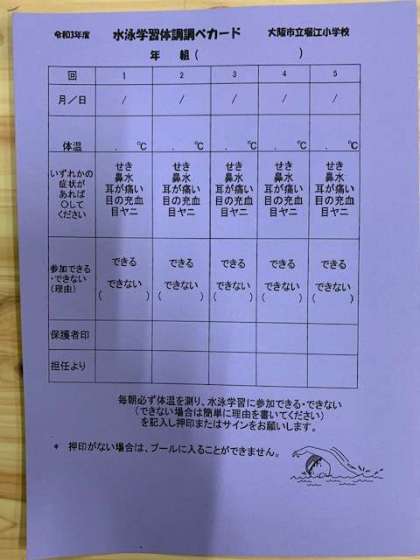 令和3年度 水泳学習体調調べカード 大阪市立堀江小学校
年 組 ( )
回 1 2 3 4 5
月／日 / / / / /
体温 . ℃ . ℃ . ℃ . ℃ . ℃
いずれかの症状があれば○してください
せき せき せき せき せき
鼻水 鼻水 鼻水 鼻水 鼻水
耳が痛い 耳が痛い 耳が痛い 耳が痛い 耳が痛い
目の充血 目の充血 目の充血 目の充血 目の充血
目ヤニ 目ヤニ 目ヤニ 目ヤニ 目ヤニ
参加できる・できない(理由)
できる できる できる できる できる
できない できない できない できない できない
( ) ( ) ( ) ( ) ( )
保護者印
担任より
毎朝必ず体温を測り、水泳学習に参加できる・できない
(できない場合は簡単に理由を書いてください)
を記入し押印またはサインをお願いします。
* 押印がない場合は、プールに入ることができません。